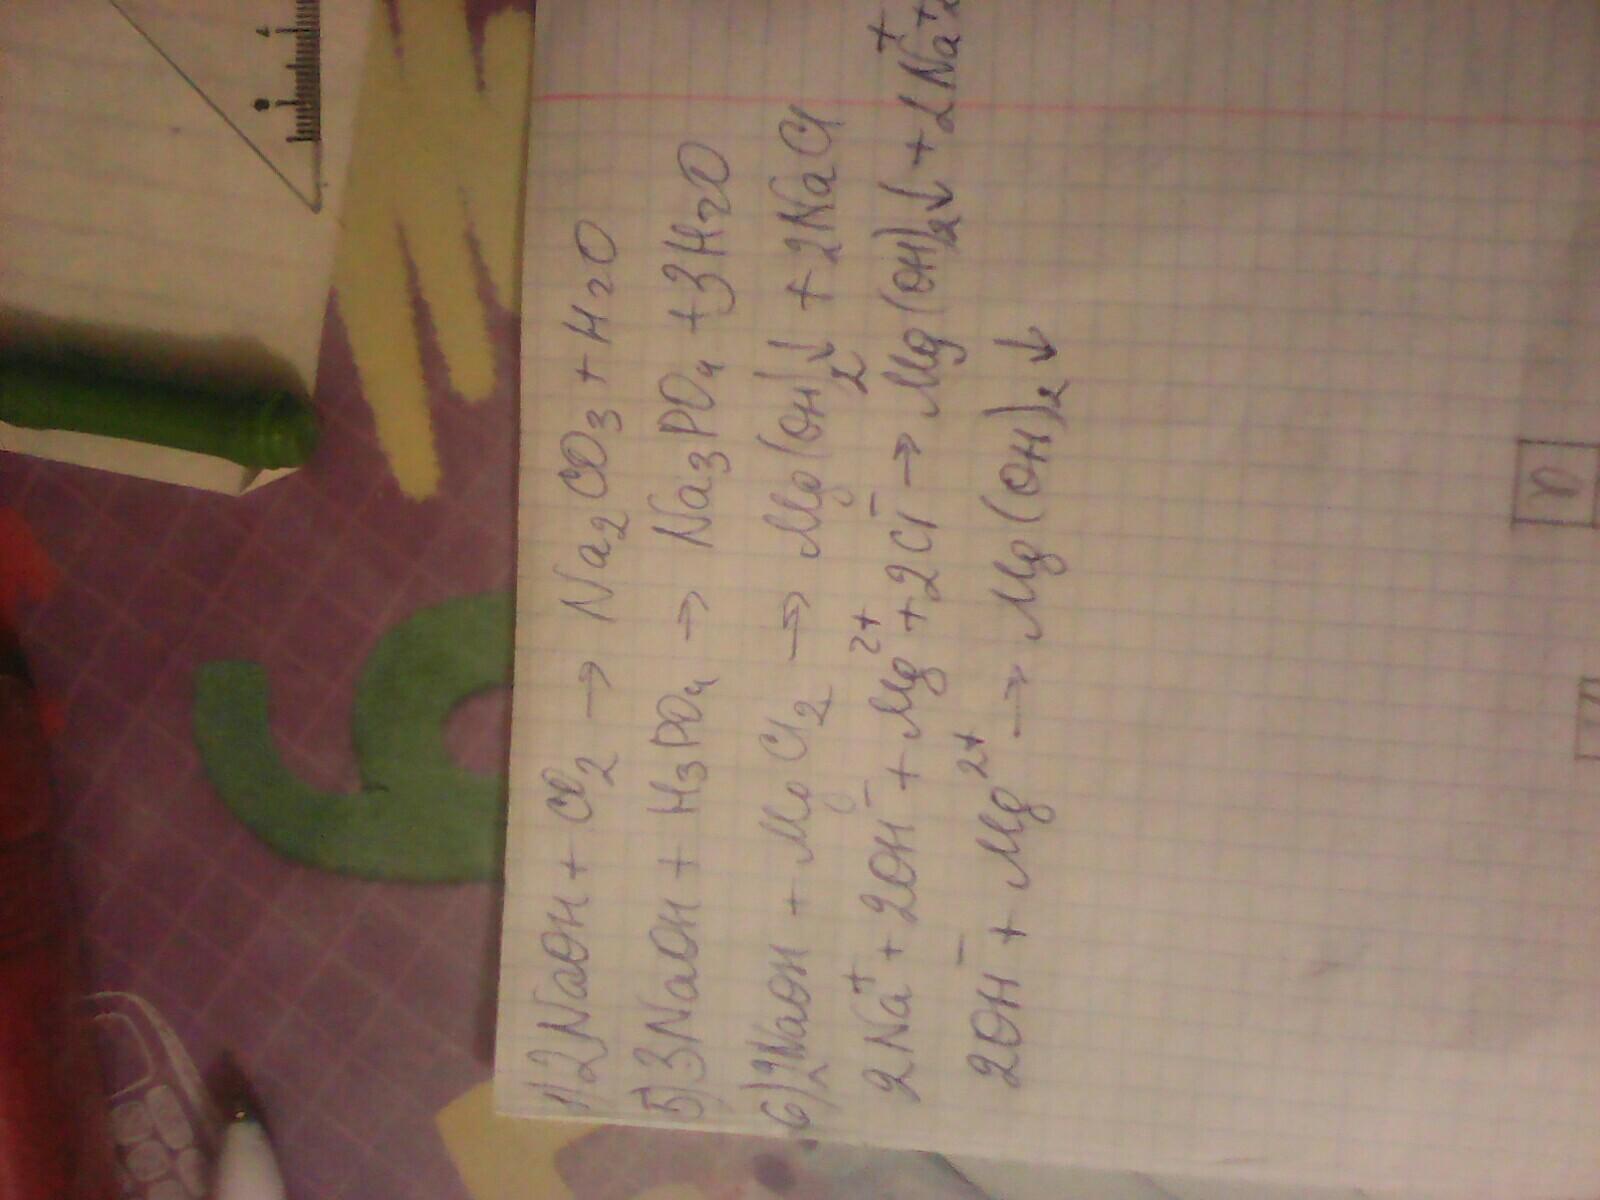 1) 2NaOH + CO₂ → Na₂CO₃ + H₂O
5) 3NaOH + H₃PO₄ → Na₃PO₄ + 3H₂O
6) 2NaOH + MgCl₂ → Mg(OH)₂↓ + 2NaCl
2Na⁺ + 2OH⁻ + Mg²⁺ + 2Cl⁻ → Mg(OH)₂↓ + 2Na⁺
2OH⁻ + Mg²⁺ → Mg(OH)₂↓